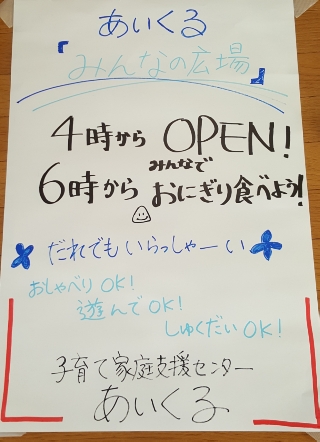 あいくる
『みんなの広場』
4時から OPEN!
6時から みんなで おにぎり食べよう!
だれでも いらっしゃーい
おしゃべり OK!
遊んで OK!
しゅくだい OK!
子育て家庭支援センター
あいくる